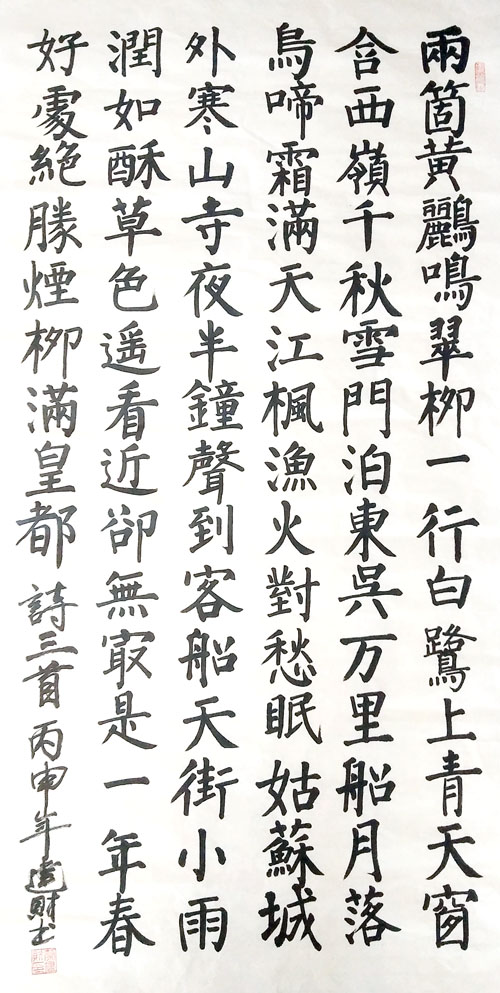 兩箇黄鸝鳴翠柳一行白鷺上青天窗
含西嶺千秋雪門泊東吳万里船月落
烏啼霜滿天江楓漁火對愁眠姑蘇城
外寒山寺夜半鐘聲到客船天街小雨
潤如酥草色遥看近卻無㝡是一年春
好處絕勝煙柳滿皇都 詩三首 丙申年財书